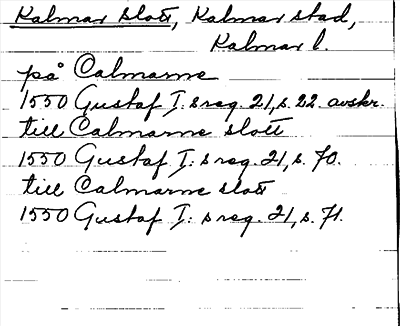 Kalmar slott, Kalmar stad,
Kalmar l.
på Calmarne
1550 Gustaf I:s reg. 21, s. 22 avskr.
till Calmarne slott
1550 Gustaf I:s reg. 21, s. 70.
till Calmarne slott
1550 Gustaf I:s reg. 21, s. 71.